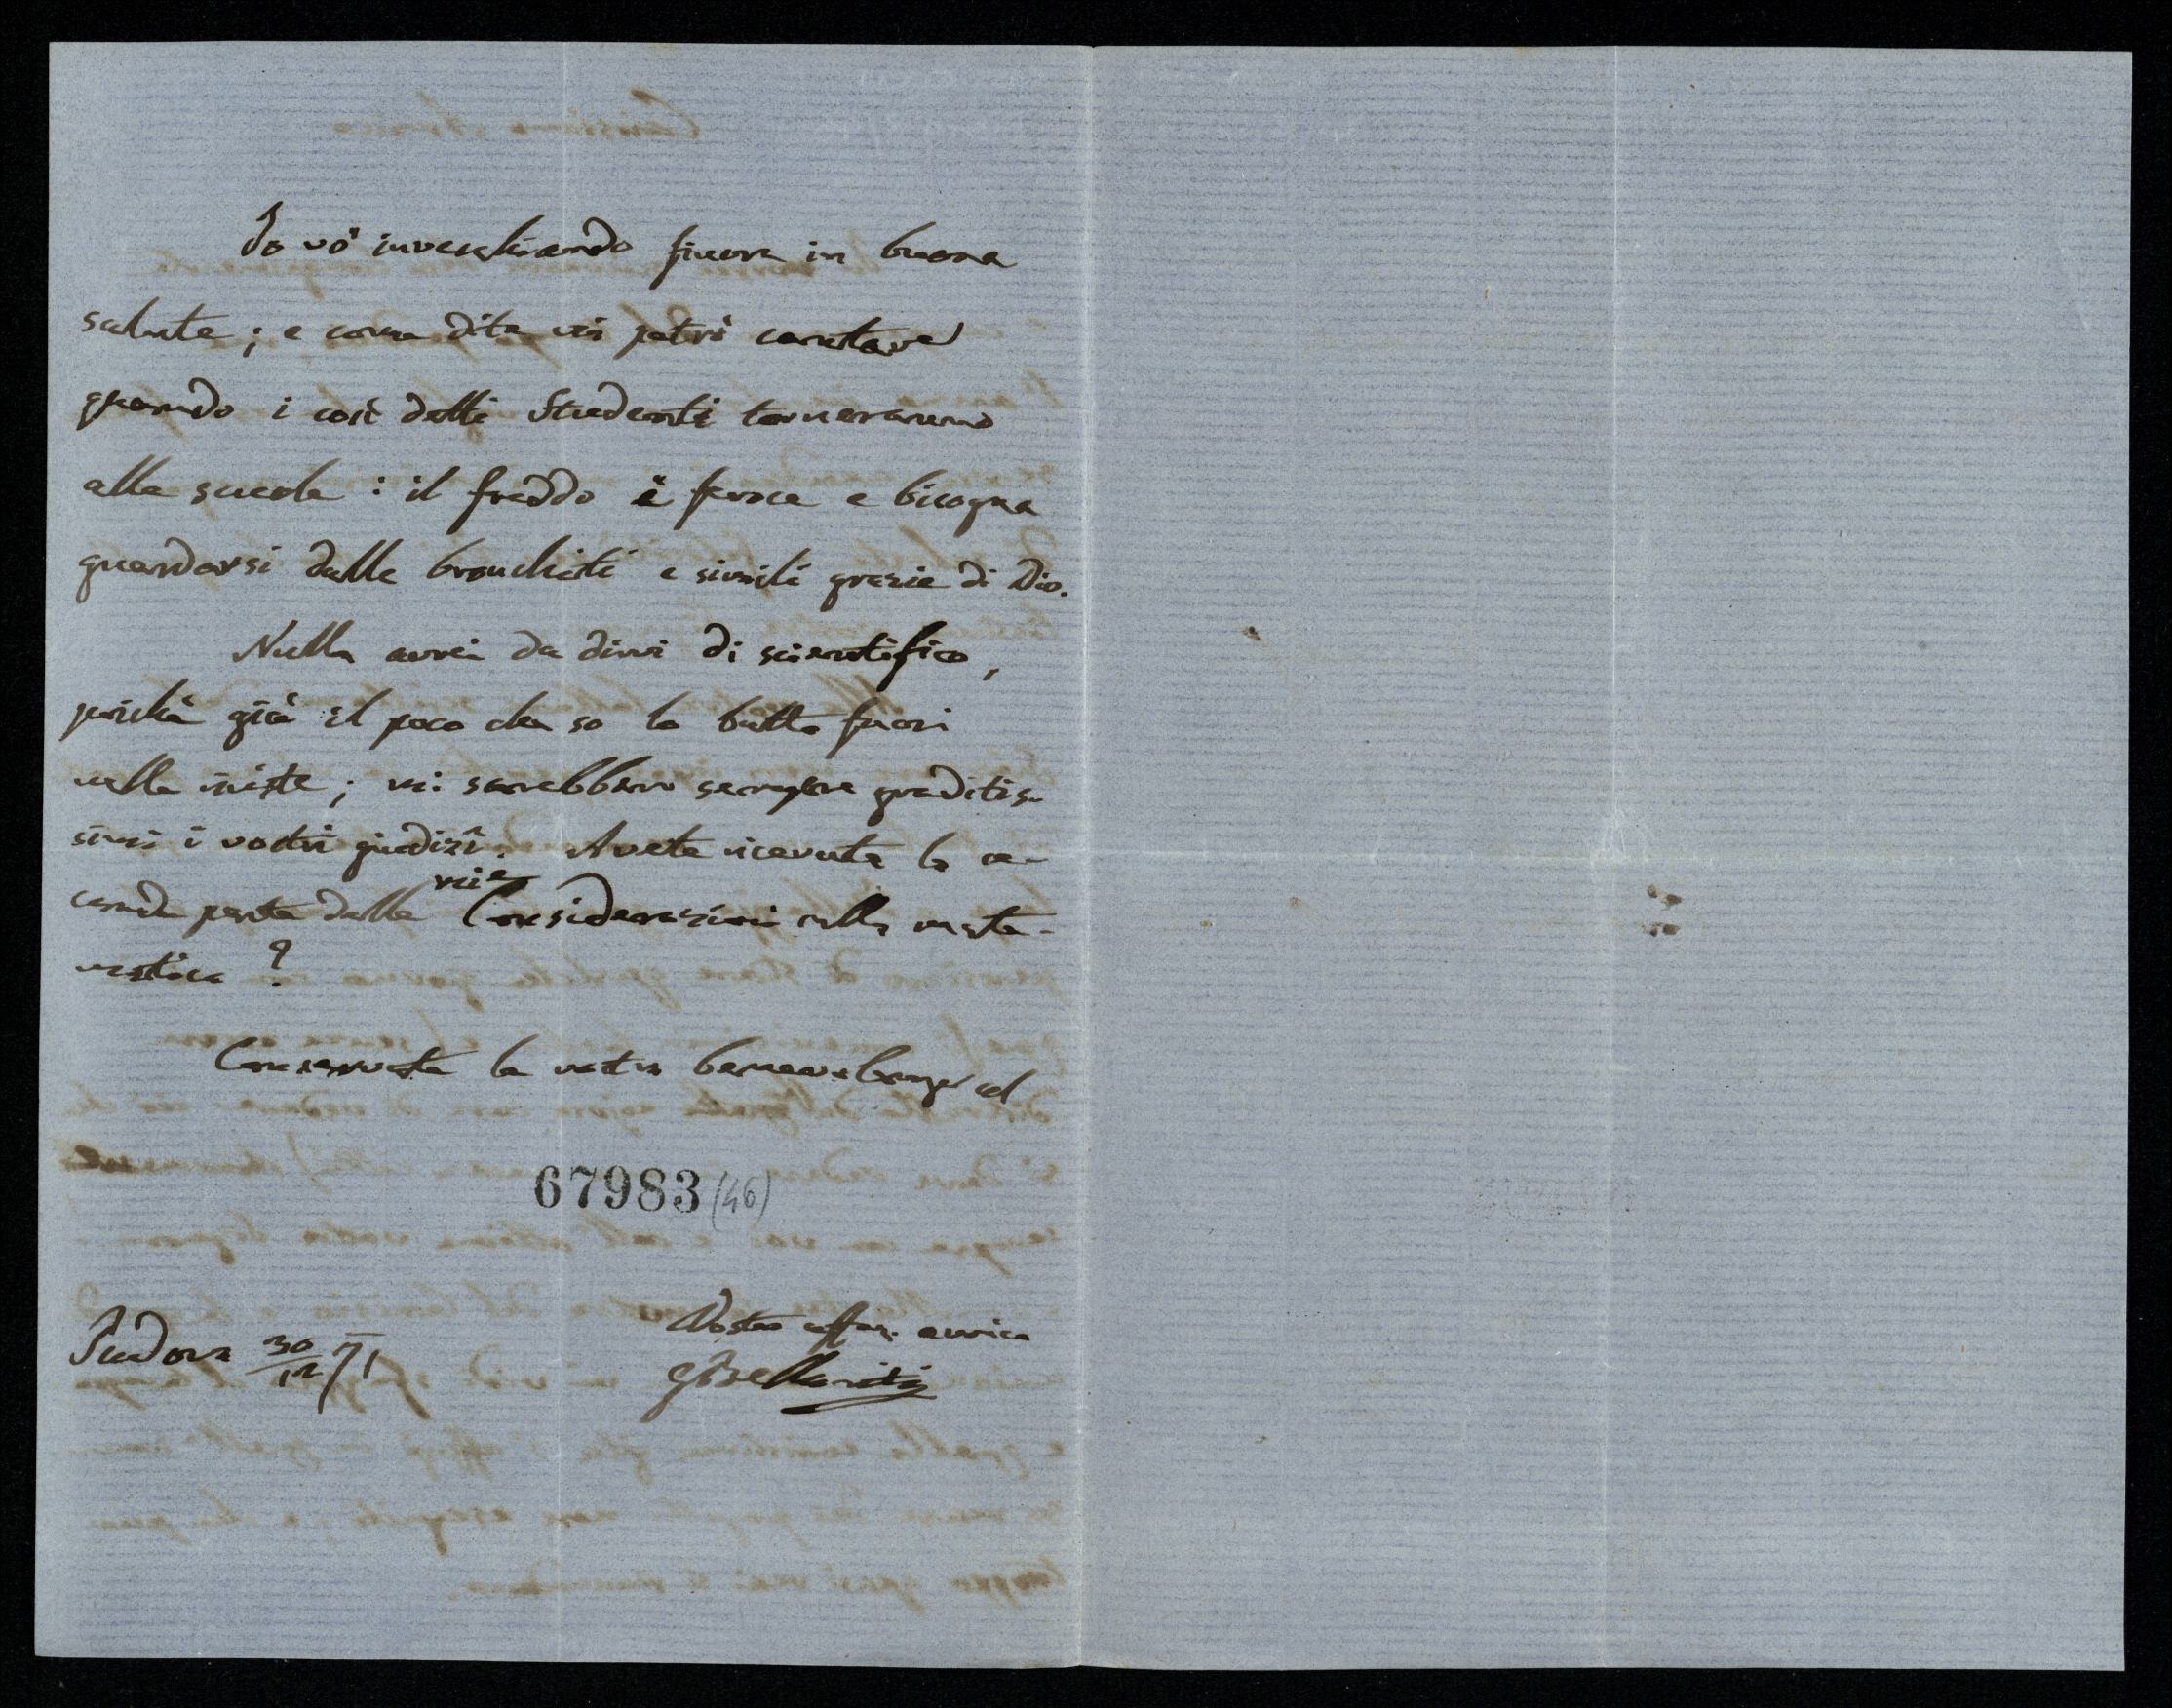 Io vò invecchiando finora in buona
salute; e come dite voi potrò cantare
quando i così detti Studenti torneranno
alle scuole: il freddo è feroce e bisogna
guardarsi dalle bronchiti e simili grazie di Dio.
Nulla avrei da dirvi di scientifico,
poichè già il poco che so lo butto fuori
nelle riviste; mi sarebbero sempre graditis-
simi i vostri giudizî. Avete ricevuta la se-
mie
conda parte delle Considerazioni sulla mate-
matica?
Conservate la vostra benevolenza al
67983 (46)
Vostro affez. amico
Padova 30/12 71
GBellavitis